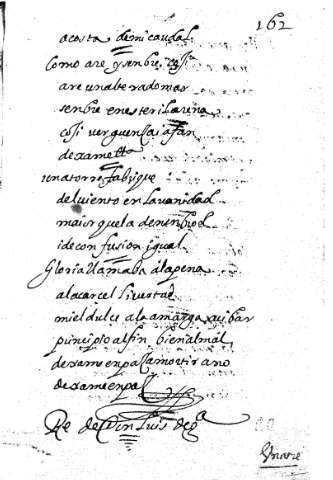 162
acosta demi caudal
Como are y senbre coji
are un alteradomar
senbre en esteril arena
coji verguença i afan
dexame etta
una torre fabrique
del viento en la vanidad
maior que la de nenbrod
i de confusion igual
Gloria llamaba a la pena
a la carcel livertad
miel dulce a la amarga acibar
principio al fin bien al mal
dexame en paz amor tirano
dexame en paz
Re de Don Luis de ga